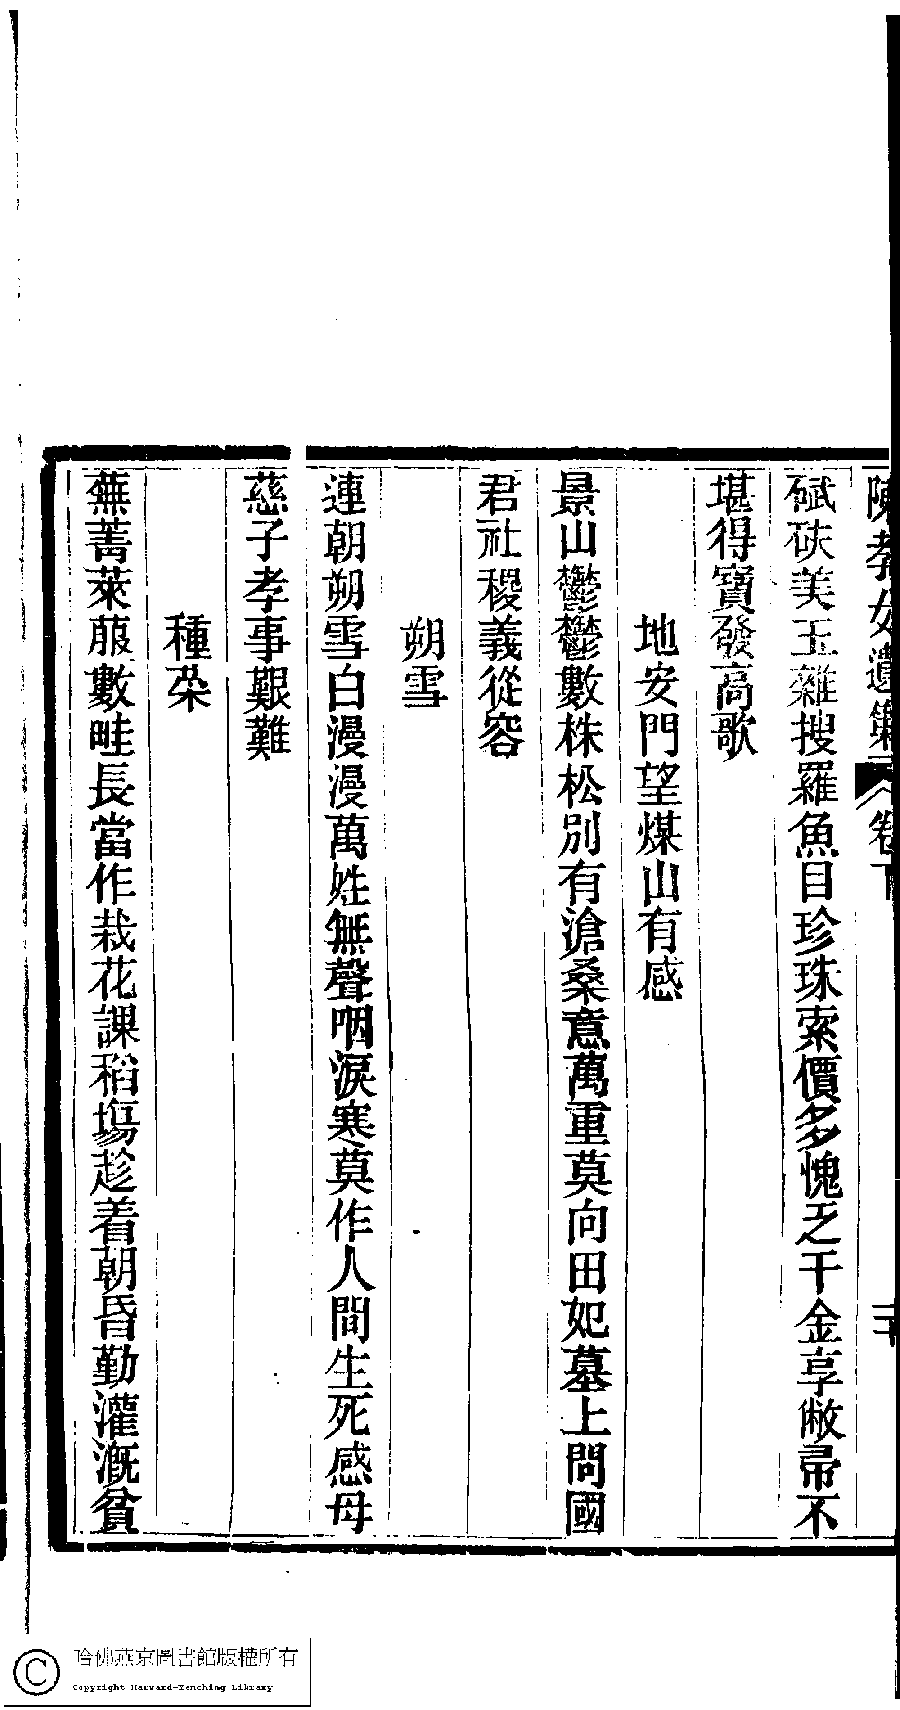 陳孝女遺集 卷下 二十
碔砆美玉雜搜羅魚目珍珠索價多愧乏千金享敝帚不
堪得寶發高歌
地安門望煤山有感
景山鬱鬱數株松別有滄桑意萬重莫向田妃墓上問國
君社稷義從容
朔雪
連朝朔雪白漫漫萬姓無聲咽淚寒莫作人間生死感母
慈子孝事艱難
種菜
蕪菁萊菔數畦長當作栽花課稻塲趁着朝昏勤灌漑貧
哈佛燕京圖書館版權所有
Copyright Harvard-Yenching Library